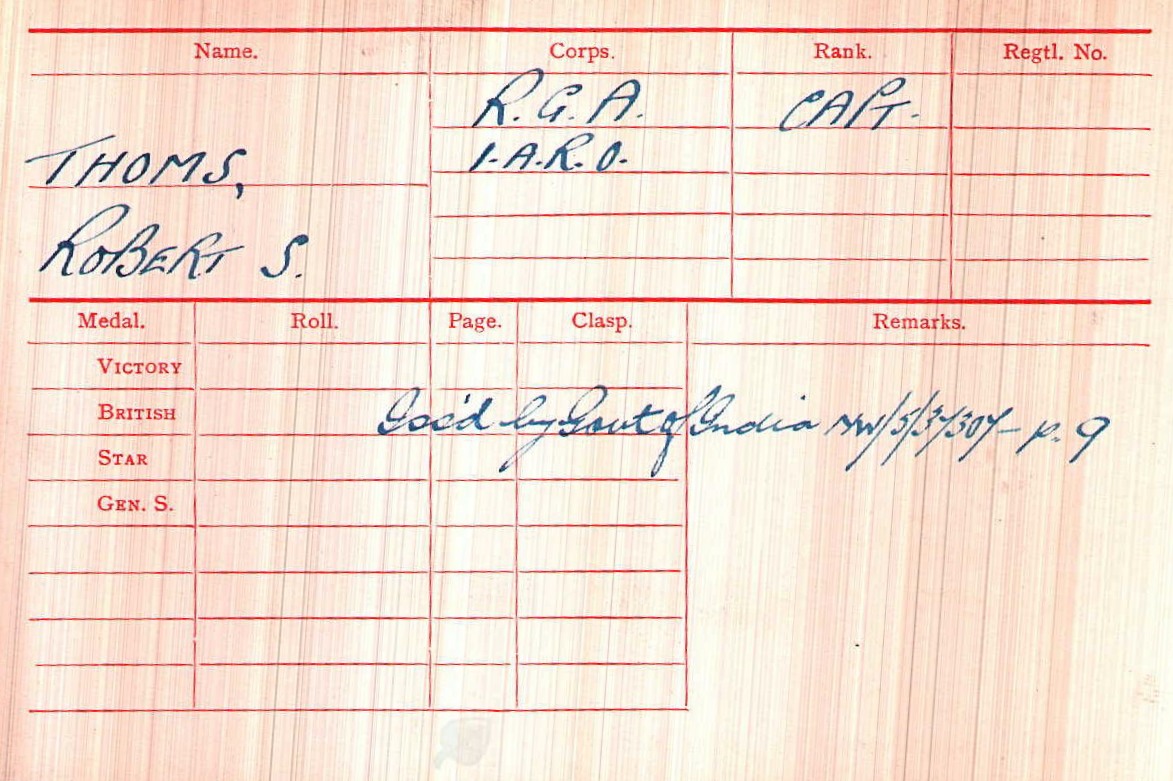 Name. Corps. Rank. Regtl. No.
R.G.A. CAPT.
THOMS, I.A.R.O.
ROBERT S.
Medal. Roll. Page. Clasp. Remarks.
VICTORY
BRITISH Iss'd by Govt of India NW/5/ p. 9
STAR
GEN. S.